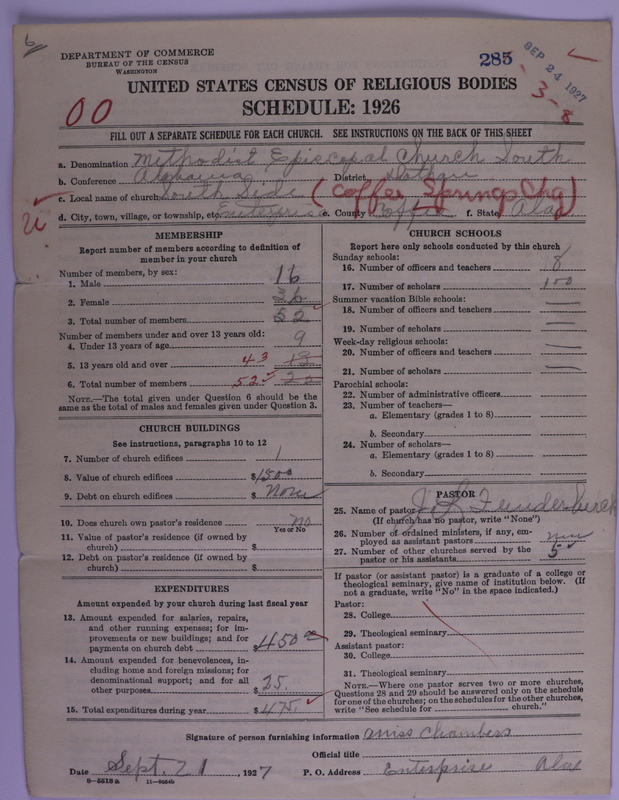 6
DEPARTMENT OF COMMERCE
BUREAU OF THE CENSUS
WASHINGTON
285
SEP 24 1927
3-8
UNITED STATES CENSUS OF RELIGIOUS BODIES
SCHEDULE: 1926
00
FILL OUT A SEPARATE SCHEDULE FOR EACH CHURCH. SEE INSTRUCTIONS ON THE BACK OF THIS SHEET
a. Denomination Methodist Episcopal Church South
b. Conference Alabama District Dothan
c. Local name of church South Side (Coffee Springs Chg)
d. City, town, village, or township, etc. Enterprise e. County Coffee f. State Ala
MEMBERSHIP
Report number of members according to definition of
member in your church
Number of members, by sex:
1. Male 16
2. Female 36
3. Total number of members 52
Number of members under and over 13 years old:
4. Under 13 years of age 9
5. 13 years old and over 43 13
6. Total number of members 52 22
NOTE.—The total given under Question 6 should be
same as the total of males and females given under Question 3.
CHURCH BUILDINGS
See instructions, paragraphs 10 to 12
7. Number of church edifices 1
8. Value of church edifices $1500
9. Debt on church edifices $ None
10. Does church own pastor's residence no
Yes or No
11. Value of pastor's residence (if owned by
church) $
12. Debt on pastor's residence (if owned by
church) $
EXPENDITURES
Amount expended by your church during last fiscal year
13. Amount expended for salaries, repairs,
and other running expenses; for im-
provements or new buildings; and for
payments on church debt $450 00
14. Amount expended for benevolences, in-
cluding home and foreign missions; for
denominational support; and for all
other purposes $25.
15. Total expenditures during year $475.
CHURCH SCHOOLS
Report here only schools conducted by this church
Sunday schools:
16. Number of officers and teachers 8
17. Number of scholars 100
Summer vacation Bible schools:
18. Number of officers and teachers —
19. Number of scholars —
Week-day religious schools:
20. Number of officers and teachers —
21. Number of scholars —
Parochial schools:
22. Number of administrative officers
23. Number of teachers—
a. Elementary (grades 1 to 8)
b. Secondary
24. Number of scholars—
a. Elementary (grades 1 to 8)
b. Secondary
PASTOR
25. Name of pastor
(If church has no pastor, write "None")
26. Number of ordained ministers, if any, em-
ployed as assistant pastors none
27. Number of other churches served by the
pastor or his assistants 5
If pastor (or assistant pastor) is a graduate of a college or
theological seminary, give name of institution below. (If
not a graduate, write "No" in the space indicated.)
Pastor:
28. College
29. Theological seminary
Assistant pastor:
30. College
31. Theological seminary
NOTE.—Where one pastor serves two or more churches,
Questions 28 and 29 should be answered only on the schedule
for one of the churches; on the schedules for the other churches,
write "See schedule for church."
Signature of person furnishing information Miss Chambers
Official title
Date Sept. 21, 1927 P. O. Address Enterprise Ala